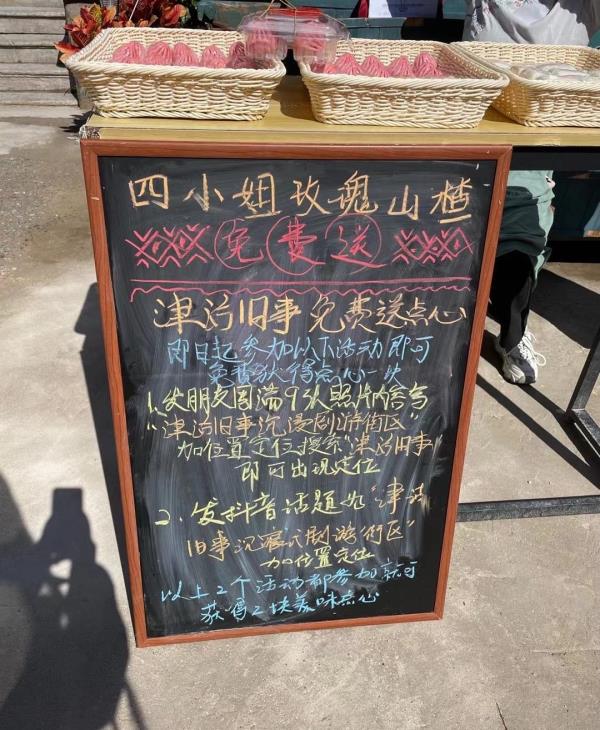 四小姐玫瑰山楂
免费送
津沽旧事免费送点心
即日起参加以下活动即可
免费获得点心一块
1、发朋友圈满9张照片内含写
"津沽旧事沉浸剧游街区"
加位置定位搜索"津沽旧事"
即可出现定位
2、发抖音话题如"津沽
旧事沉浸式剧游街区"
加位置定位
以上2个活动都参加就可
获得2块美味点心